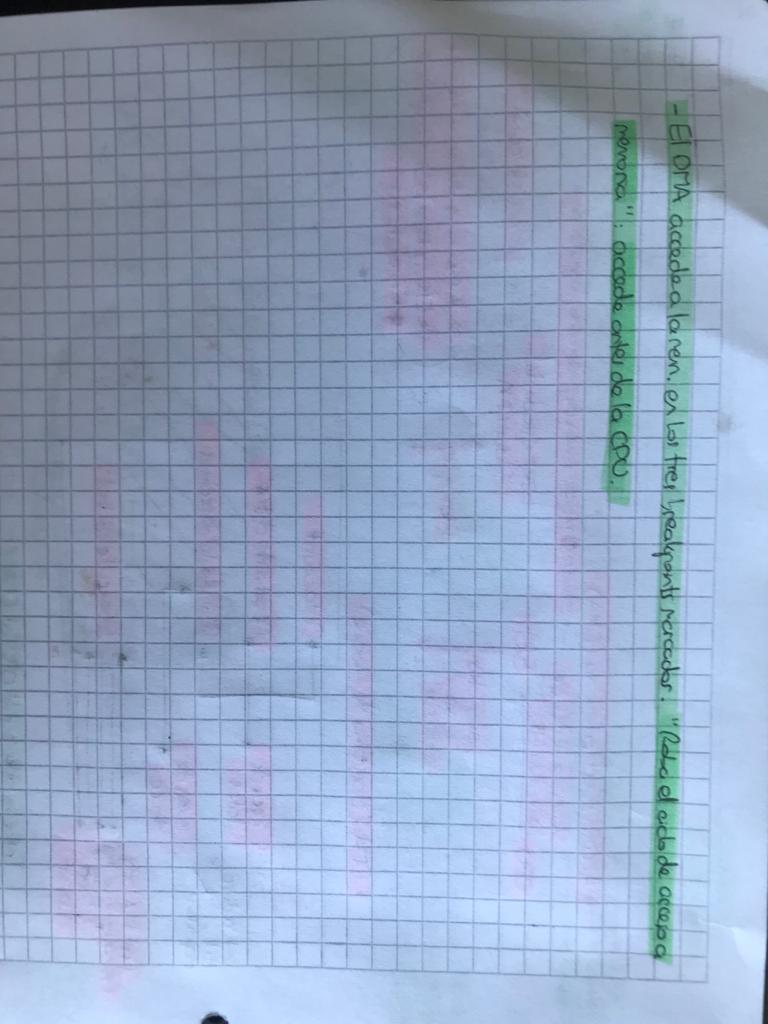 - El DMA accede a la mem. en los tres breakpoints marcados. "Roba el ciclo de acceso a
memoria": accede antes de la CPU.